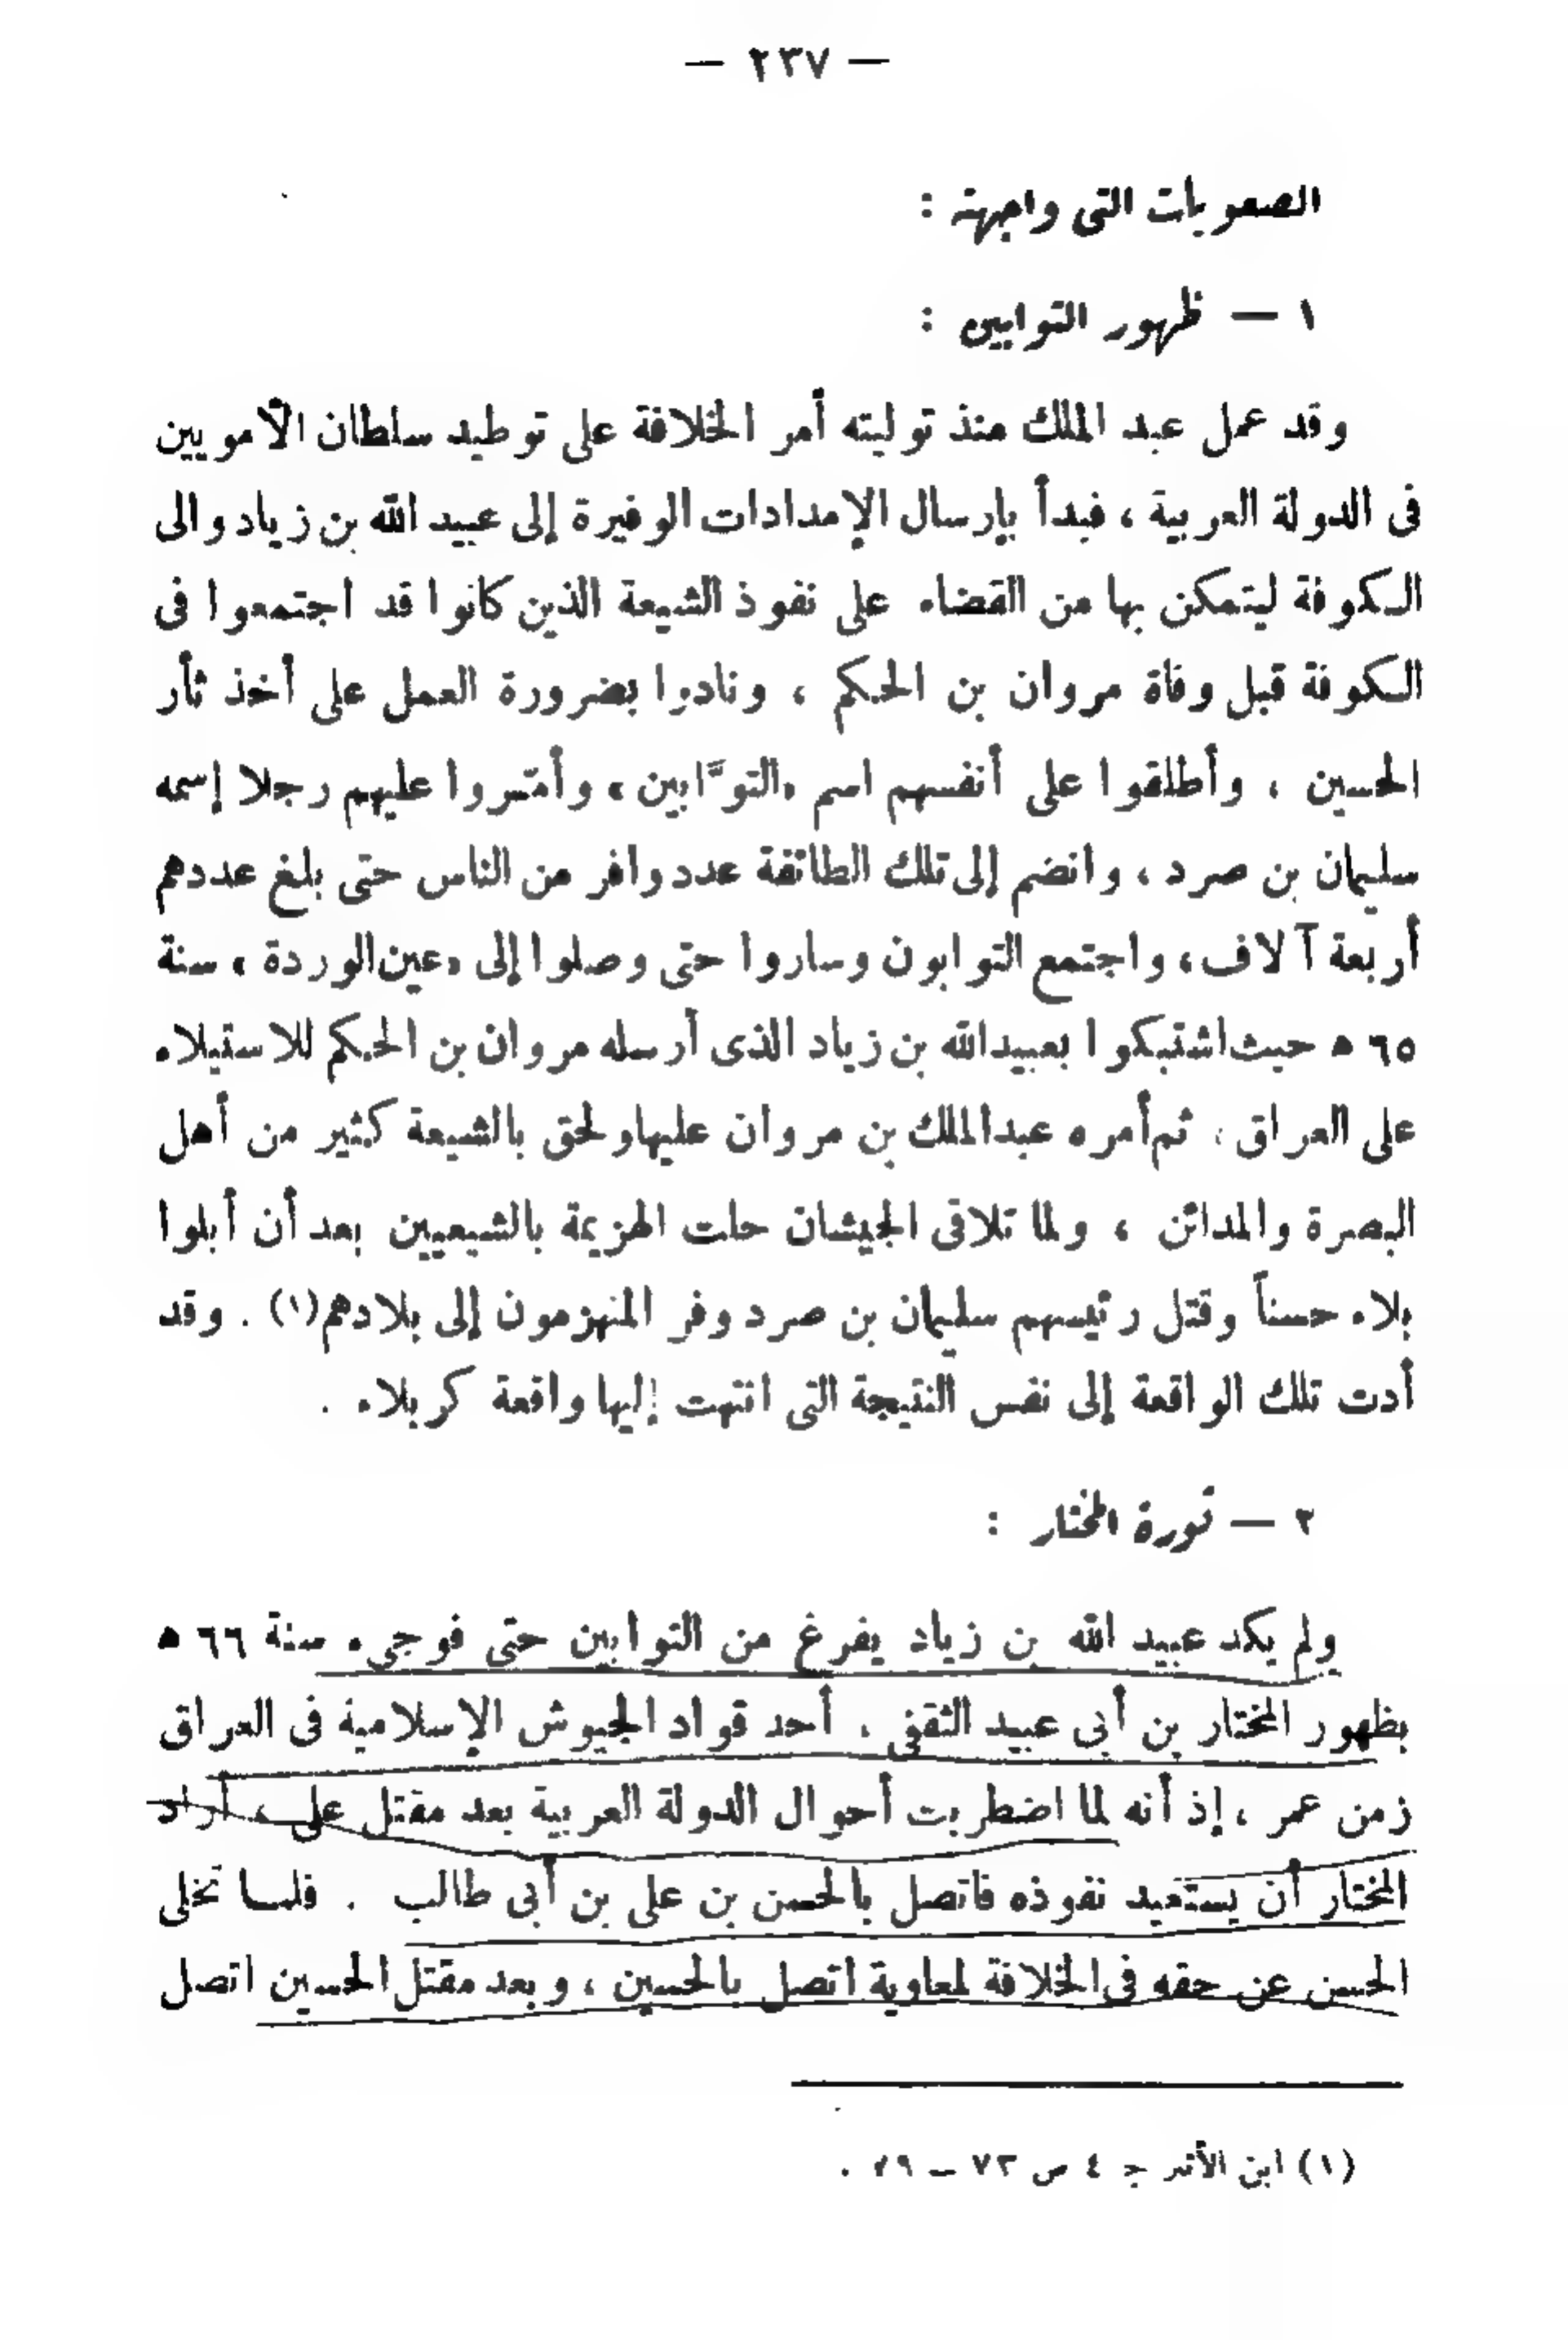 — ٢٣٧ —
الصعوبات التى واجهته :
١ — ظهور التوابين :
وقد عمل عبد الملك منذ توليته أمر الخلافة على توطيد سلطان الأمويين
فى الدولة العربية ، فبدأ بإرسال الإمدادات الوفيرة إلى عبيد الله بن زياد والى
الكوفة ليتمكن بها من القضاء على نفوذ الشيعة الذين كانوا قد اجتمعوا فى
الكوفة قبل وفاة مروان بن الحكم ، ونادوا بضرورة العمل على أخذ ثأر
الحسين ، وأطلقوا على أنفسهم اسم «التوَّابين» وأمّروا عليهم رجلا إسمه
سليمان بن صرد ، وانضم إلى تلك الطائفة عدد وافر من الناس حتى بلغ عددهم
أربعة آلاف ، واجتمع التوابون وساروا حتى وصلوا إلى «عين الوردة» سنة
٦٥ ه حيث اشتبكوا بعبيد الله بن زياد الذى أرسله مروان بن الحكم للاستيلاء
على العراق ، ثم أمره عبد الملك بن مروان عليها ولحق بالشيعة كثير من أهل
البصرة والمدائن ، ولما تلاقى الجيشان حلت الهزيمة بالشيعيين بعد أن أبلوا
بلاء حسناً وقتل رئيسهم سليمان بن صرد وفر المنهزمون إلى بلادهم(١) . وقد
أدت تلك الواقعة إلى نفس النتيجة التى انتهت إليها واقعة كربلاء .
٢ — ثورة المختار :
ولم يكد عبيد الله بن زياد يفرغ من التوابين حتى فوجىء سنة ٦٦ ه
بظهور المختار بن أبى عبيد الثقفى . أحد قواد الجيوش الإسلامية فى العراق
زمن عمر ، إذ أنه لما اضطربت أحوال الدولة العربية بعد مقتل على ، أراد
المختار أن يستعيد نفوذه فاتصل بالحسن بن على بن أبى طالب . فلما تخلى
الحسن عن حقه فى الخلافة لمعاوية اتصل بالحسين ، وبعد مقتل الحسين اتصل
(١) ابن الأثير ج ٤ ص ٧٣ –